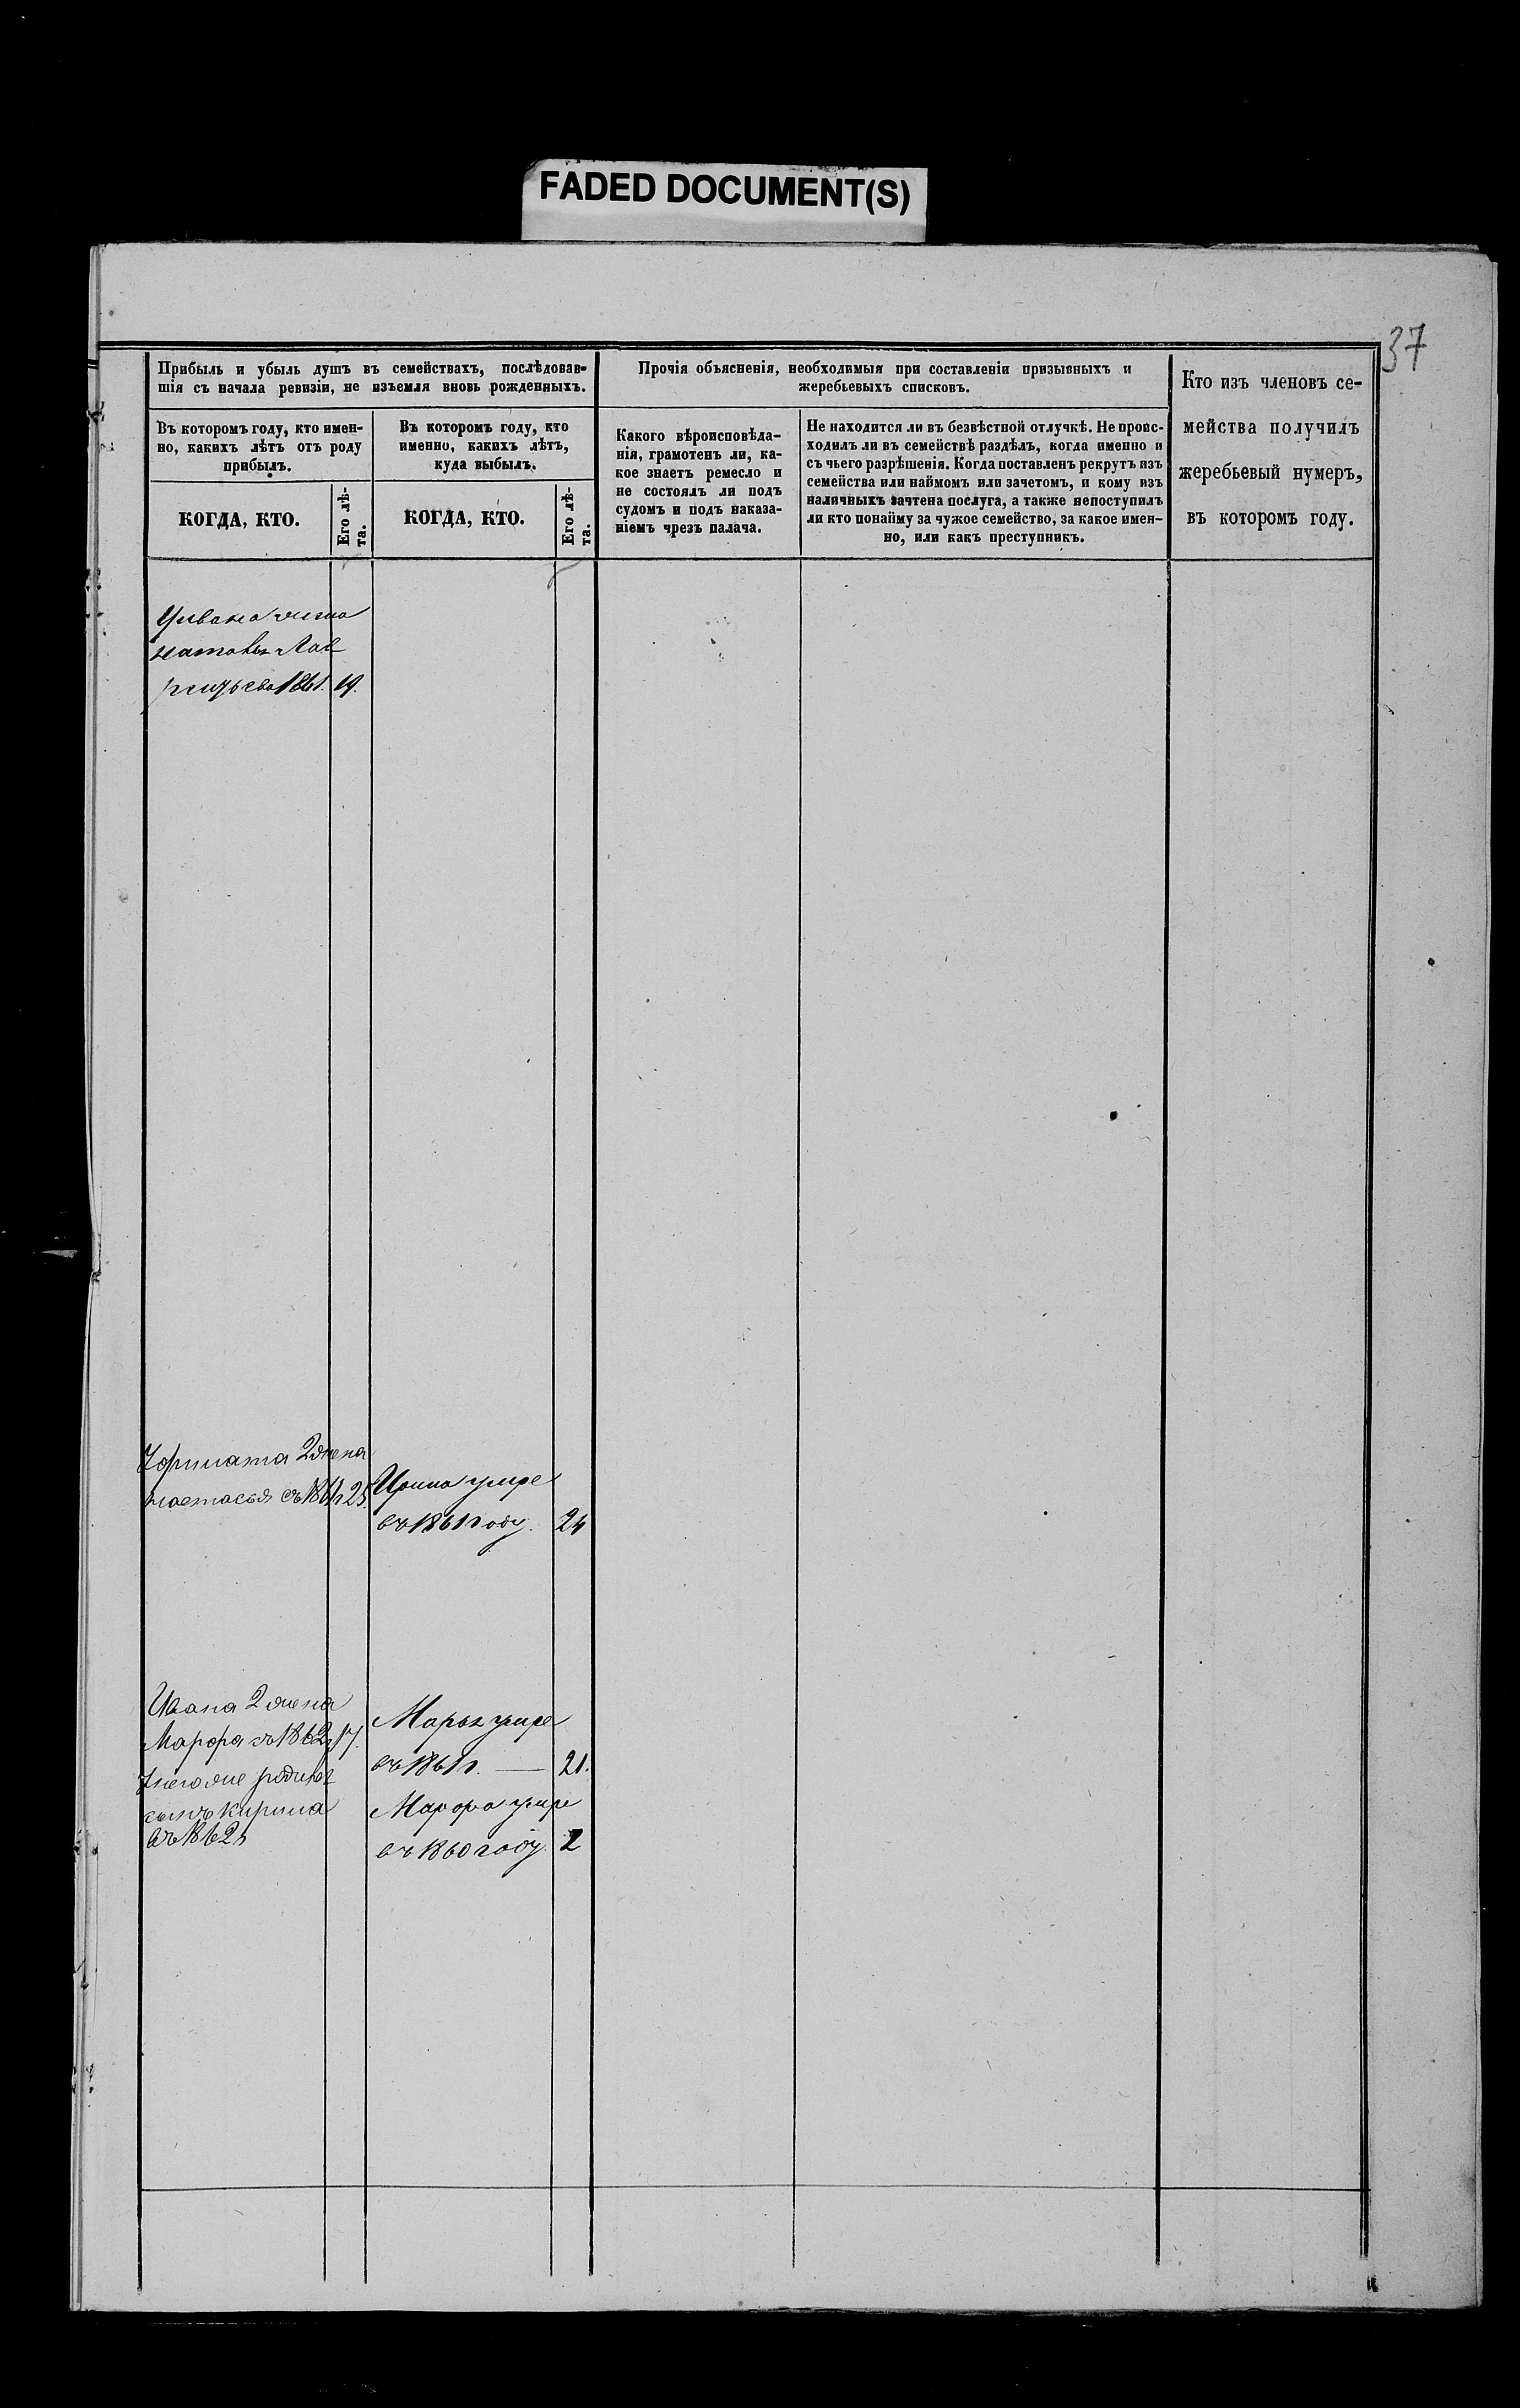 FADED DOCUMENT(S)
37
Прибыль и убыль душъ въ семействахъ, послѣдовав-
шія съ начала ревизіи, не изъемля вновь рожденныхъ.
Въ которомъ году, кто имен-
но, какихъ лѣтъ отъ роду
прибылъ.
КОГДА, КТО.
Его лѣ-
та.
Въ которомъ году, кто
именно, какихъ лѣтъ,
куда выбылъ.
КОГДА, КТО.
Его лѣ-
та.
Прочія объясненія, необходимыя при составленіи призывныхъ и
жеребьевыхъ списковъ.
Какого вѣроисповѣда-
нія, грамотенъ ли, ка-
кое знаетъ ремесло и
не состоялъ ли подъ
судомъ и подъ наказа-
ніемъ чрезъ палача.
Не находится ли въ безвѣстной отлучкѣ. Не проис-
ходилъ ли въ семействѣ раздѣлъ, когда именно и
съ чьего разрѣшенія. Когда поставленъ рекрутъ изъ
семейства или наймомъ или зачетомъ, и кому изъ
наличныхъ зачтена послуга, а также непоступилъ
ли кто понайму за чужое семейство, за какое имен-
но, или какъ преступникъ.
Кто изъ членовъ се-
мейства получилъ
жеребьевый нумеръ,
въ которомъ году.
Уивана жена
Лав
1861. 19.
2 жена
настасья съ 1861г 25.
Ирина умре
въ 1861 году. 24
Ивана 2 жена
Марфа съ 1862г 17.
сынъ
въ 1862г
Марья умре
въ 1861г. — 21.
Марфа умре
въ 1860 году 2